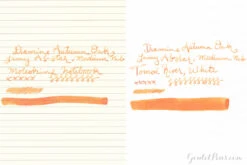 Diamine Autumn Oak
Lamy Al-star, Medium Nib
Moleskine Notebook
xxxxx
Diamine Autumn Oak
Lamy Al-star, Medium Nib
Tomoe River, White
xxxxx